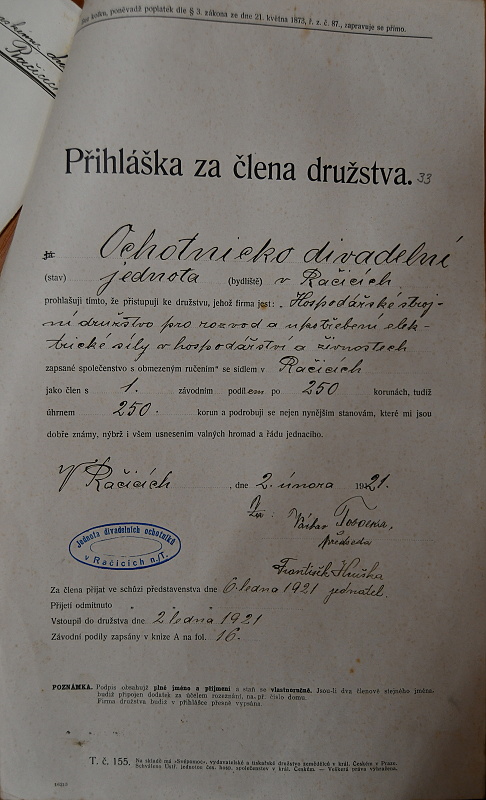 Račicích
kolku, poněvadž poplatek dle § 3. zákona ze dne 21. května 1873, ř. z. č. 87., zapravuje se přímo.
Přihláška za člena družstva. 33
Ochotnicko divadelní
(stav) jednota (bydliště) v Račicích
prohlašuji tímto, že přistupuji ke družstvu, jehož firma jest: „Hospodářské stroj-
ní družstvo pro rozvod a upotřebení elek-
trické síly v hospodářství a živnostech
zapsané společenstvo s obmezeným ručením" se sídlem v Račicích
jako člen s 1. závodním podílem po 250 korunách, tudíž
úhrnem 250. korun a podrobuji se nejen nynějším stanovám, které mi jsou
dobře známy, nýbrž i všem usnesením valných hromad a řádu jednacího.
V Račicích, dne 2. února 1921.
Za: Václav
předseda
Jednota divadelních ochotníků
v Račicích n./T.
František jednatel.
Za člena přijat ve schůzi představenstva dne 6. ledna 1921
Přijetí odmítnuto " "
Vstoupil do družstva dne 2 ledna 1921
Závodní podíly zapsány v knize A na fol. 16.
POZNÁMKA. Podpis obsahujž plné jméno a příjmení a staň se vlastnoručně. Jsou-li dva členové stejného jména,
budiž připojen dodatek za účelem rozeznání, na př. číslo domu.
Firma družstva budiž v přihlášce přesně vypsána.
T. č. 155. Na skladě má «Svépomoc», vydavatelské a tiskařské družstvo zemědělců v král. Českém v Praze.
Schválena Ústř. jednotou čes. hosp. společenstev v král. Českém. — Veškerá práva vyhrazena.